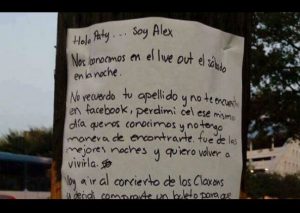 Hola Paty... Soy Alex
Nos conocimos en el live out el sábado
en la noche.
No recuerdo tu apellido y no te encuentro
en facebook, perdi mi cel ese mismo
dia que nos conocimos y no tengo
manera de encontrarte. fue de las
mejores noches y quiero volver a
vivirla.
Voy a ir al concierto de los Claxons
y decidí comprarte un boleto para que